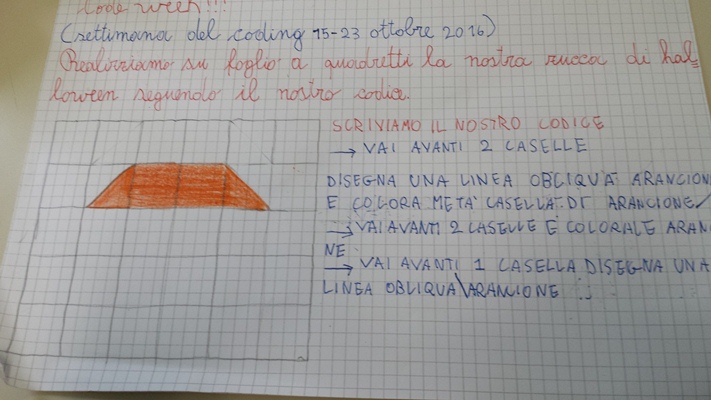 Code week!!!
(settimana del coding 15-23 ottobre 2016)
Realizziamo su foglio a quadretti la nostra zucca di hal
loween seguendo il nostro codice.
SCRIVIAMO IL NOSTRO CODICE
→ VAI AVANTI 2 CASELLE
DISEGNA UNA LINEA OBLIQUA ARANCION
E COLORA META' CASELLA DI ARANCIONE/
→ VAI AVANTI 2 CASELLE E COLORALE ARAN
NE
→ VAI AVANTI 1 CASELLA DISEGNA UNA
LINEA OBLIQUA\ARANCIONE